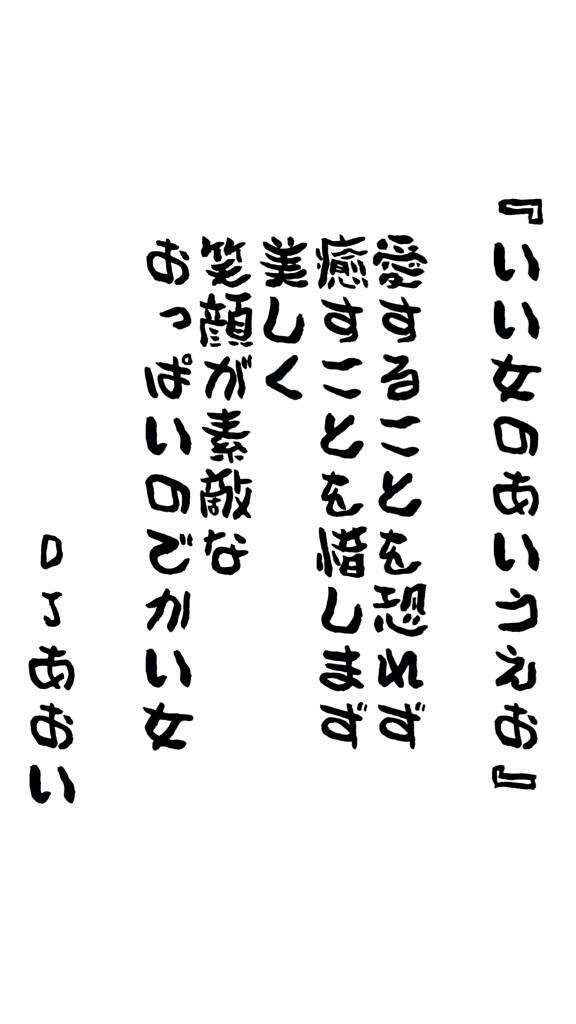 『いい女のあいうえお』
愛することを恐れず
癒すことを惜しまず
美しく
笑顔が素敵な
おっぱいのでかい女
DJあおい